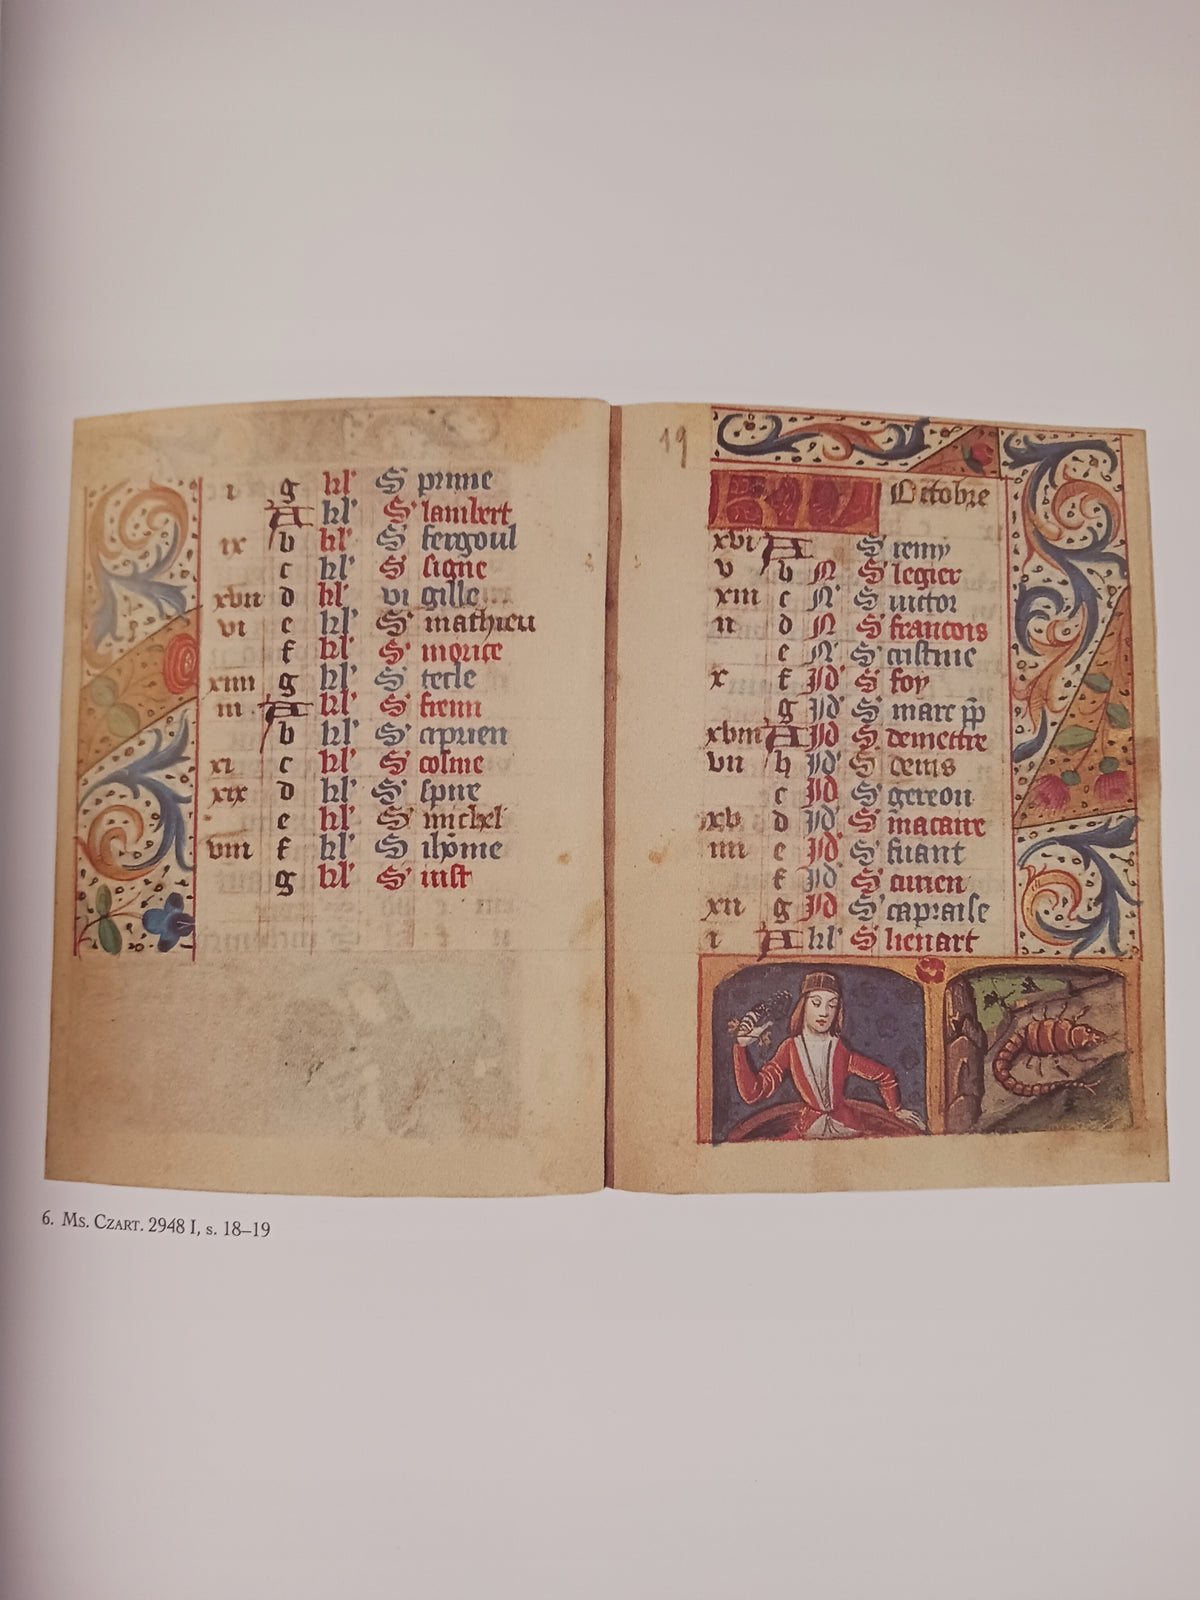 i g kl' S' prime
A kl' S' lambert
ix b kl' S' fergoul
c kl' S' signe
xvii d kl' vi gille
vi e kl' S' mathieu
f kl' S' morice
xiiii g kl' S' tecle
iii A kl' S' fremi
b kl' S' ciprien
xi c kl' S' cosme
xix d kl' S' spire
e kl' S' michel
viii f kl' S' ih'ome
g kl' S' iust
19
Octobre
xvi A S' remy
v b N S' legier
xiii c N' S' victor
ii d N S' francois
e N' S' cristine
x f Id' S' foy
g Id' S' marc pp
xviii A Id S' demettre
vii b Id' S' denis
c Id S' gereon
xv d Id' S' macaire
iiii e Id' S' fuant
f Id S'
xii g Id S' capraise
i A kl' S' lienart
6. Ms. Czart. 2948 I, s. 18–19